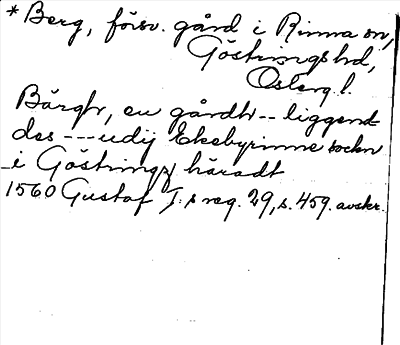 * Berg, försv. gård i Rinna sn,
Göstringshd,
Östergl.
Bärgh, en gårdh -- liggend=
des --- udij Ekebyrinne sockn
i Göstrings häradt
1560 Gustaf I:s reg. 29, s. 459. avskr.